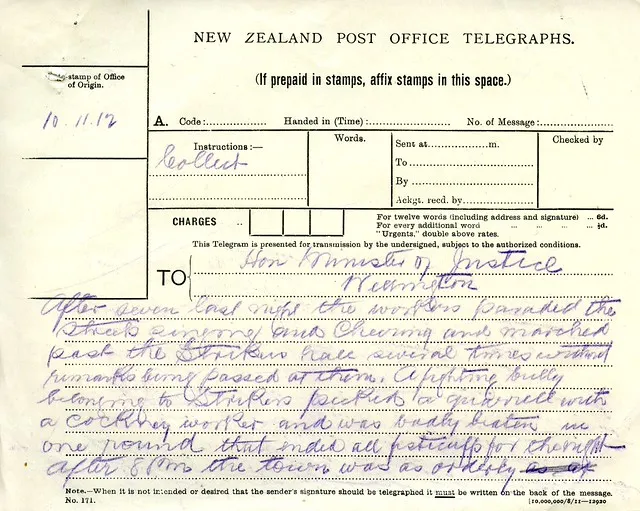 NEW ZEALAND POST OFFICE TELEGRAPHS.
(If prepaid in stamps, affix stamps in this space.)
-stamp of Office
of Origin.
10.11.12
A. Code: Handed in (Time): No. of Message:
Instructions:—
Collect
Words.
Sent at m.
To
By
Ackgt. recd. by
Checked by
CHARGES ..
For twelve words (including address and signature) ... 6d.
For every additional word ... ... ... ½d.
"Urgents," double above rates.
This Telegram is presented for transmission by the undersigned, subject to the authorized conditions.
TO
Hon Minister of Justice
Wellington
After seven last night the workers paraded the
streets singing and cheering and marched
past the Strikers hall several times
remarks being passed at them. A fighting bully
belonging to Strikers picked a quarrell with
a cockney worker and was badly beaten in
one round that ended all for the night
after 8 PM the town was as orderly
Note.—When it is not intended or desired that the sender's signature should be telegraphed it must be written on the back of the message.
No. 171.
[10,000,000/8/11—12920